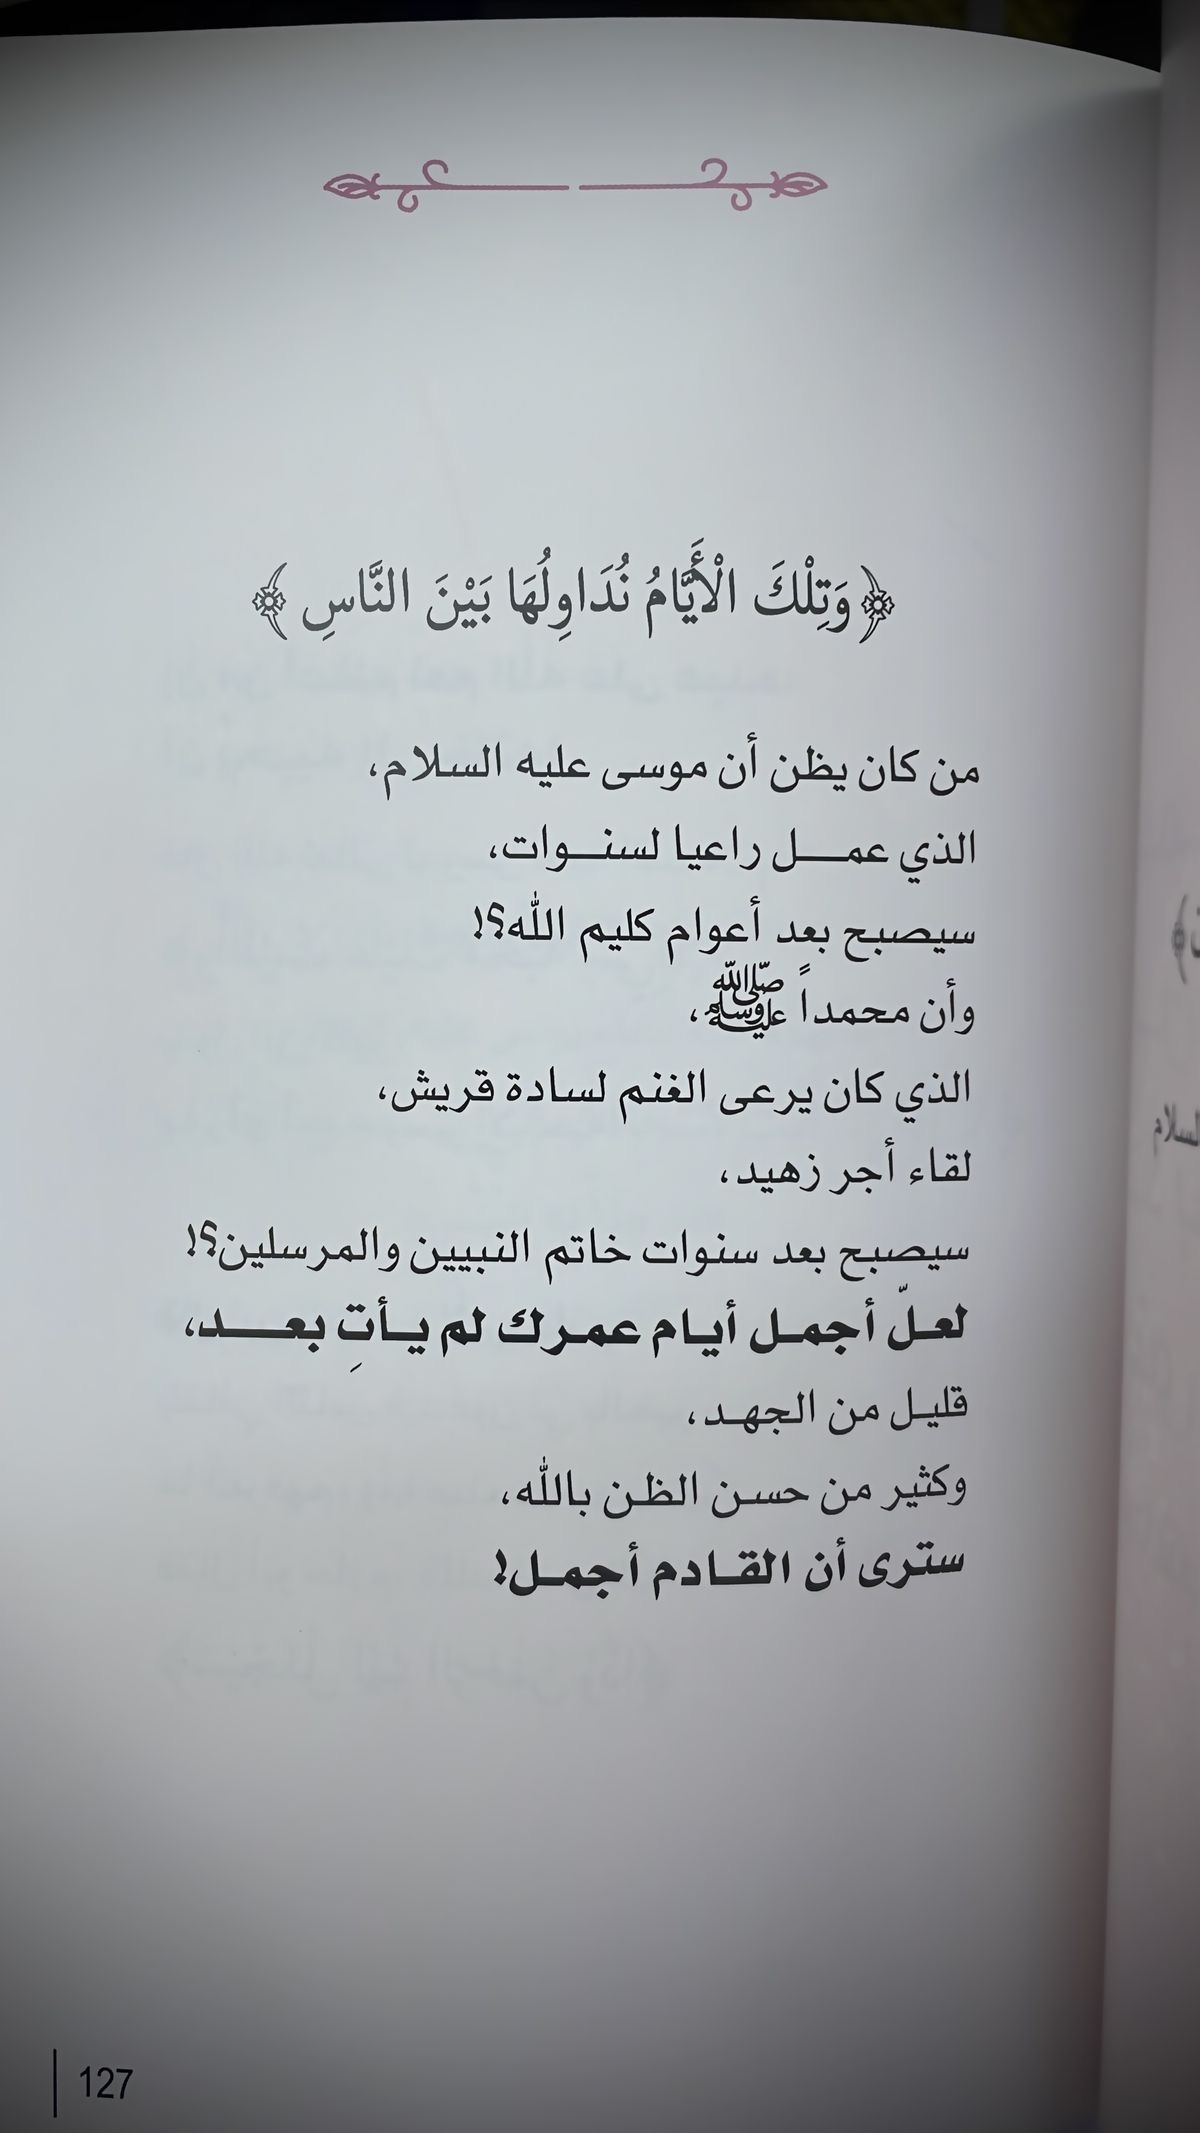 ﴿وَتِلْكَ الْأَيَّامُ نُدَاوِلُهَا بَيْنَ النَّاسِ﴾
من كان يظن أن موسى عليه السلام،
الذي عمل راعيا لسنوات،
سيصبح بعد أعوام كليم الله؟!
وأن محمداً ﷺ،
الذي كان يرعى الغنم لسادة قريش،
لقاء أجر زهيد،
سيصبح بعد سنوات خاتم النبيين والمرسلين؟!
لعلّ أجمل أيام عمرك لم يأتِ بعد،
قليل من الجهد،
وكثير من حسن الظن بالله،
سترى أن القادم أجمل!
127
السلام